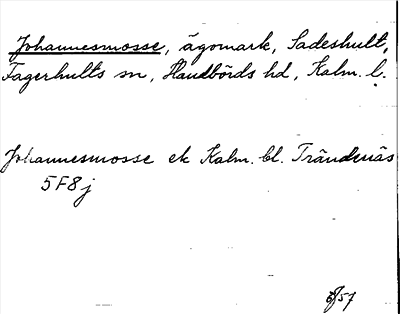 Johannesmosse, ägomark, Sadeshult,
Fagerhults sn, Handbörds hd, Kalm. l.
Johannesmosse ek Kalm. bl. Trändenäs
5F8j